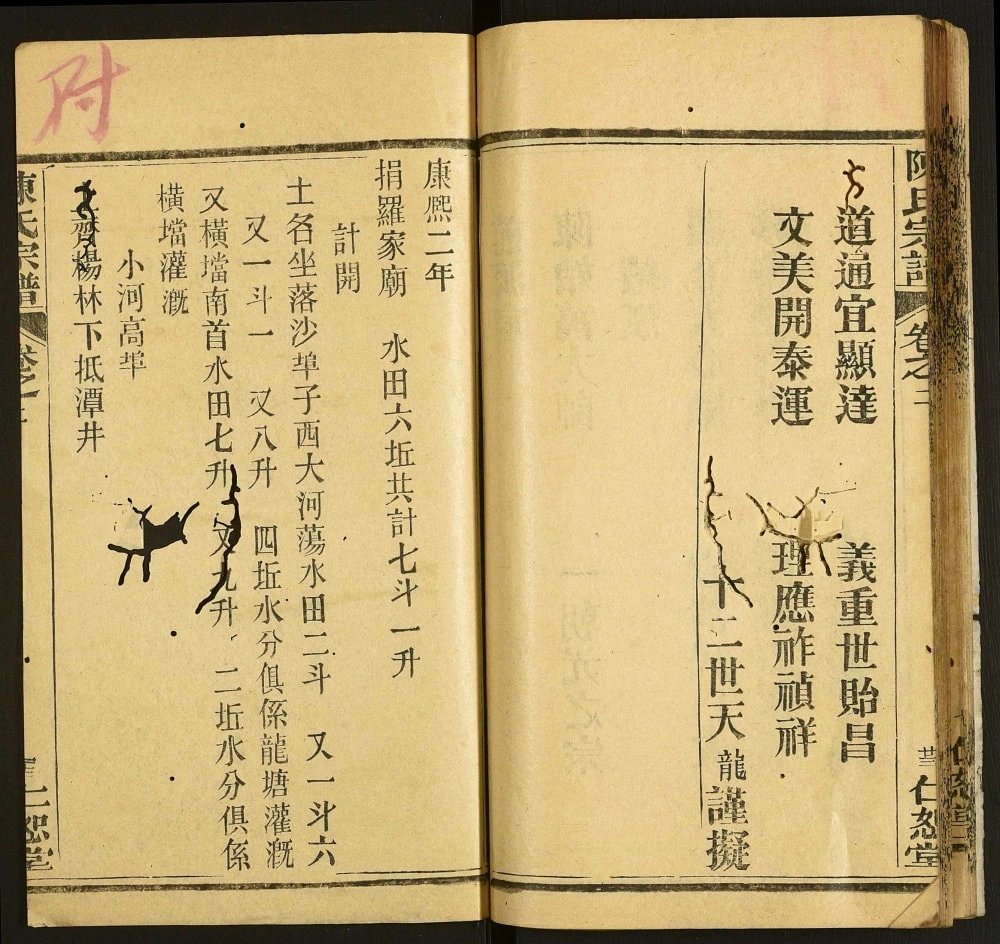 陳氏宗譜 卷之二 仁恕堂
道通宜顯達 義重世貽昌
文美開泰運 理應祚禎祥
十二世天龍謹擬
康熙二年
捐羅家廟 水田六坵共計七斗一升
計開
土名坐落沙埠子西大河蕩水田二斗 又一斗六
又一斗一 又八升 四坵水分俱係龍塘灌漑
又橫壋南首水田七升 又九升 二坵水分俱係
橫壋灌漑
小河高埠
上齊楊林下抵潭井
陳氏宗譜 卷之 仁恕堂
附